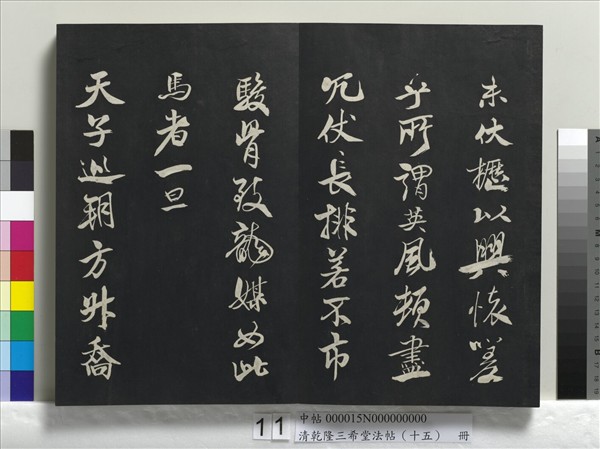 未伏櫪以興懷嗟
乎所謂英風頓盡
冗仗長排若不市
駿骨致龍媒如此
馬者一旦
天子巡朔方升喬
11
中帖 000015N000000000
清乾隆三希堂法帖（十五） 冊